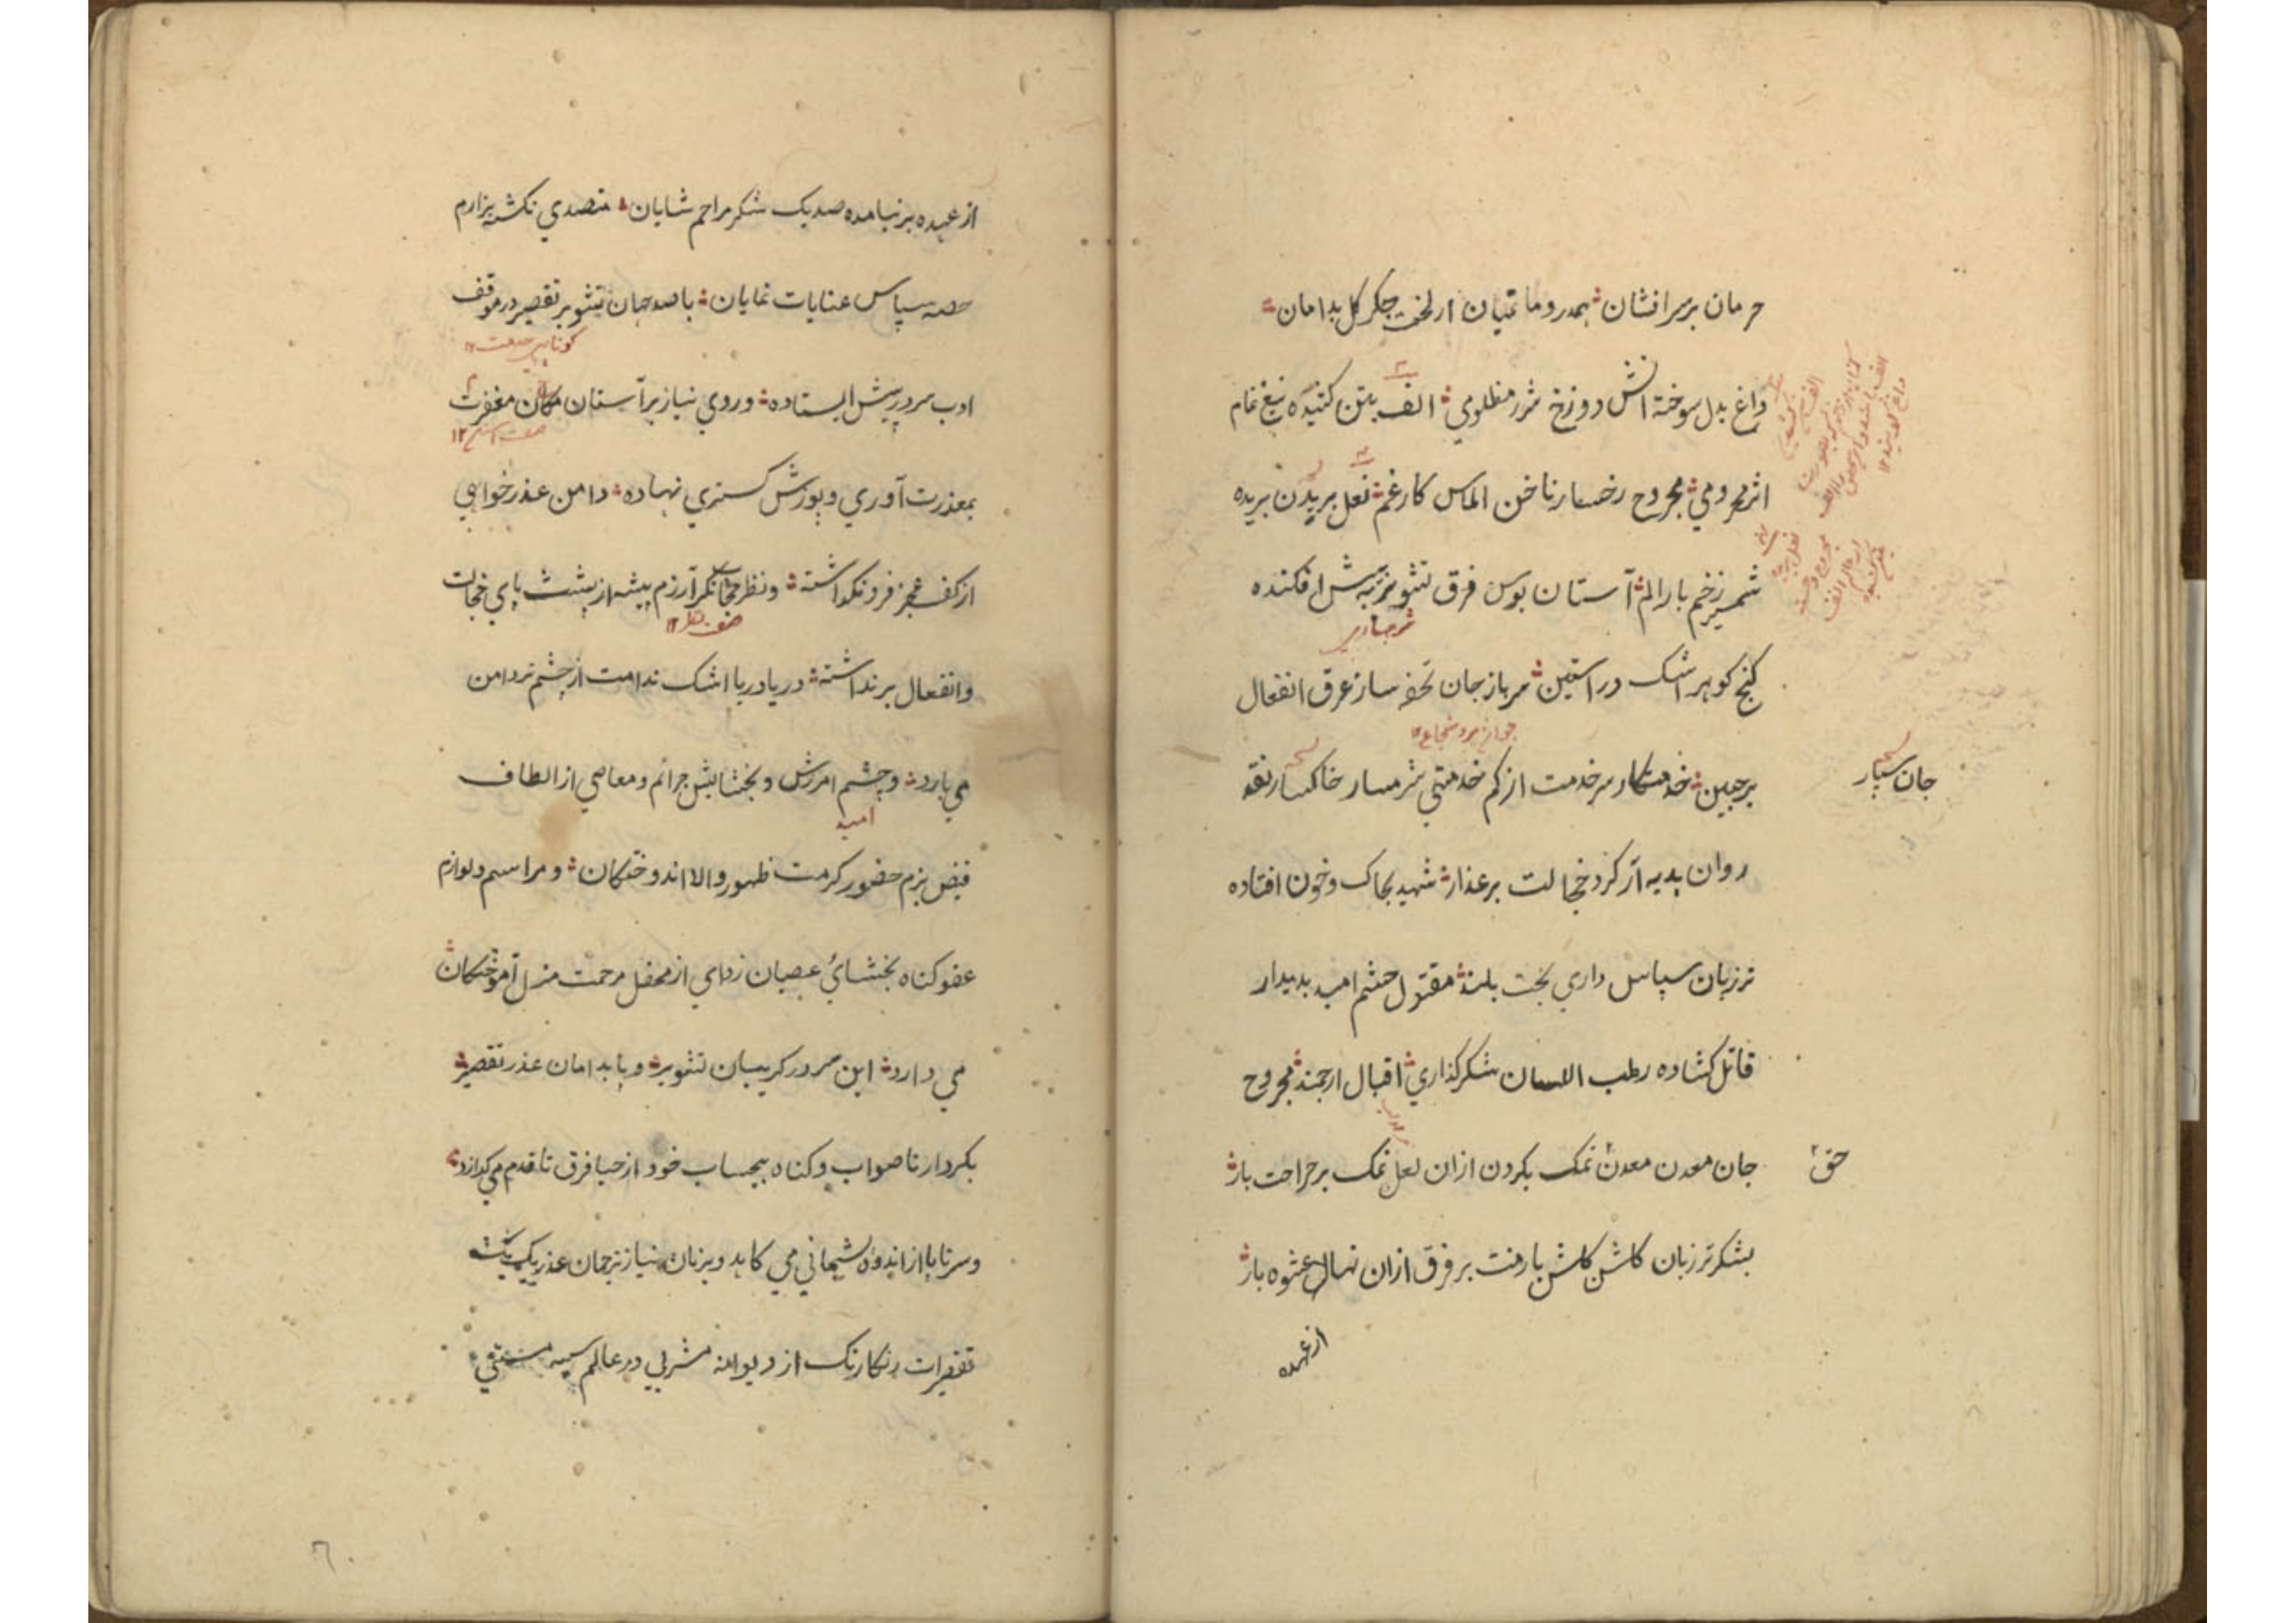 حرمان برسر افشان همدرد ماتمیان از لخت جگر کل بدامان
داغ بدل سوخته آتش دوزخ شرر مظلومي الف بتن کشیده تیغ غم
اثر محرومي مجروح رخسار ناخن الماس کار غم نعل بریدن بریده
شمشیر زخم بار الم آستان بوس فرق تشویر به پیش افکنده
کنج کوهر اشک در آستین سرباز جان تحفه ساز عرق انفعال
برجبین خدمتکار سرخدمت از کم خدمتي شرمسار خاکسار نقد
جان سپار
روان هدیه آر کرد خجالت برعذار شهید بخاک و خون افتاده
ترزبان سپاس داري بخت بلند مقتول چشم امید بدیدار
قاتل کشاده رطب اللسان شکرکذاري اقبال ارجمند مجروح
جان معدن معدن نمک بکردن ازان لعل نمک برجراحت بار
حق
بشکر ترزبان کلشن کلشن بار منت برفرق ازان نهال عشوه بار
از عهده
از عهده برنیامده صدیک شکر مراحم شایان متصدي نکشته هزارم
حصه سپاس عنایات نمایان باصد جهان تشویر تقصیر در موقف
ادب سر در پیش ایستاده وروي نیاز برآستان مکان مغفرت
بمعذرت آوري و پوزش کستري نهاده دامن عذرخواهي
از کف عجز فرونکذاشته ونظر آزرم پیشه از پشت پاي خجالت
وانفعال برنداشته دریا دریا اشک ندامت از چشم تردامن
مي بارد وچشم امرزش و بخشایش جرائم ومعاصي از الطاف
امید
فیض بزم حضور کرمت ظهور والا اندوختکان ومراسم ولوازم
عفو کناه بخشائي عصیان زداي از محفل مرحمت منزل آموختکان
مي دارد این سر در کریبان تشویر و پا بدامان عذر تقصیر
بکردار ناصواب وکناه بیحساب خود از حیا فرق تا قدم مي کدازد
وسرتاپا از اندوه پشیماني مي کاهد وبزبان نیاز ترجمان عذر یک یک
تقصیرات رنکارنک از دیوانه مشربي در عالم سیه مستي